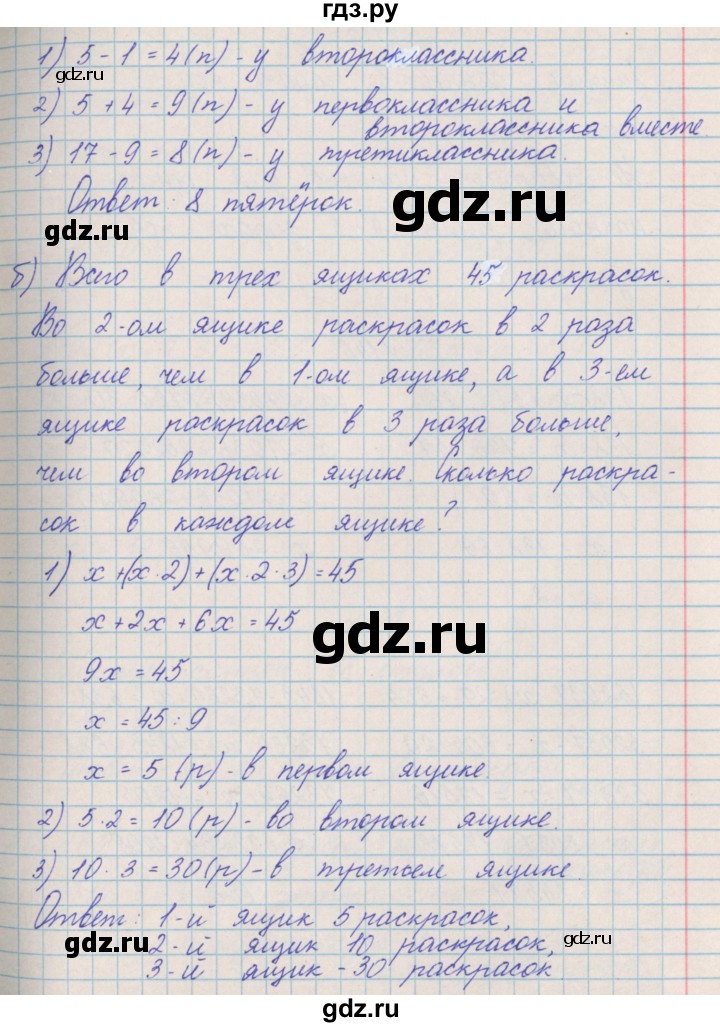 гдз.ру
1) 5 - 1 = 4 (п) - у второклассника.
2) 5 + 4 = 9 (п) - у первоклассника и
второклассника вместе.
3) 17 - 9 = 8 (п) - у третиклассника.
Ответ: 8 пятёрок.
gdz.ru
gdz.ru
б) Всего в трех ящиках 45 раскрасок.
Во 2-ом ящике раскрасок в 2 раза
больше, чем в 1-ом ящике, а в 3-ем
ящике раскрасок в 3 раза больше,
чем во втором ящике. Сколько раскра-
сок в каждом ящике?
1) x + (x · 2) + (x · 2 · 3) = 45
x + 2x + 6x = 45
gdz.ru
9x = 45
x = 45 : 9
x = 5 (р) - в первом ящике.
2) 5 · 2 = 10 (р) - во втором ящике.
3) 10 · 3 = 30 (р) - в третьем ящике.
Ответ: 1-й ящик 5 раскрасок,
2-й ящик 10 раскрасок,
gdz.ru
3-й ящик - 30 раскрасок
gdz.ru
gdz.ru